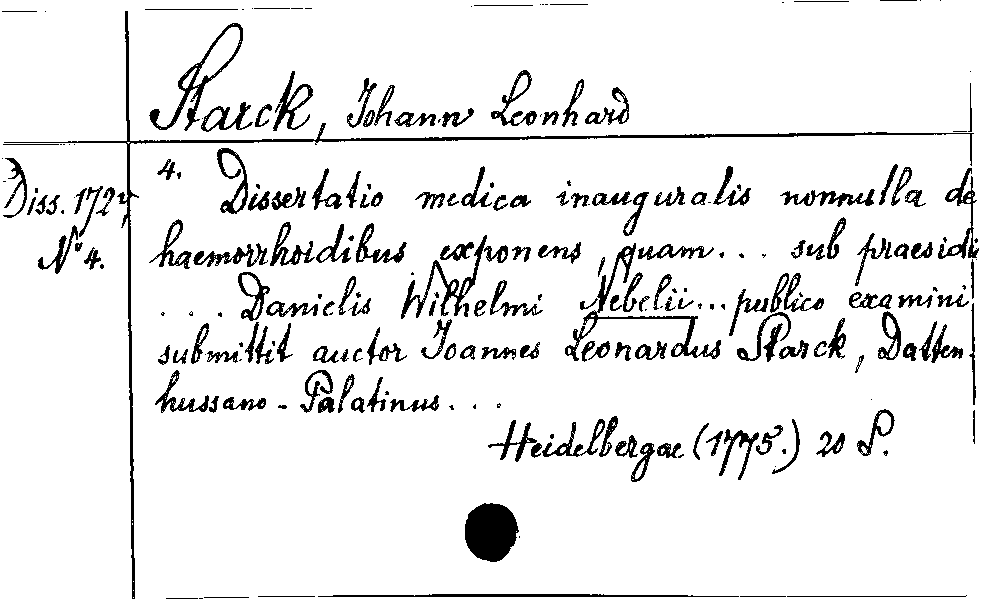 Starck, Johann Leonhard
Diss. 1727,
No 4.
4. Dissertatio medica inauguralis nonnulla de
haemorrhoidibus exponens, quam... sub praesidii
... Danielis Wilhelmi Nebelii... publico examini
submittit auctor Ioannes Leonardus Starck, Datten-
hussano-Palatinus...
Heidelbergae (1775.) 20 S.